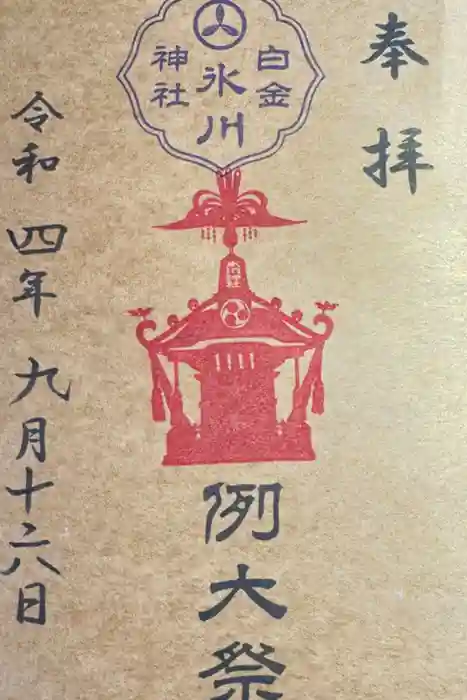 奉拝
白金
氷川
神社
例大祭
令和四年九月十六日